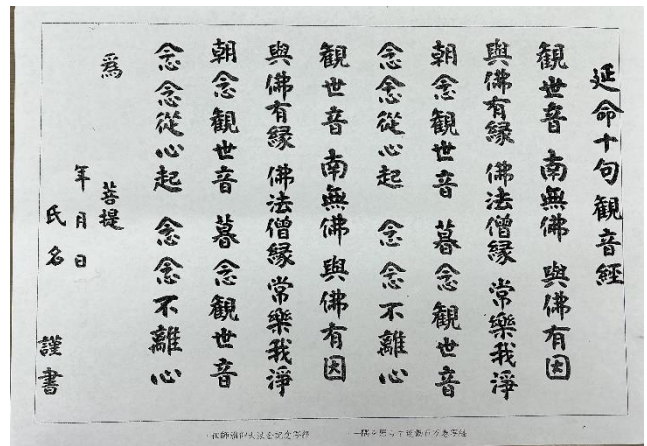 延命十句観音經
観世音 南無佛 與佛有因
與佛有縁 佛法僧縁 常樂我淨
朝念観世音 暮念観世音
念念從心起 念念不離心
観世音 南無佛 與佛有因
與佛有縁 佛法僧縁 常樂我淨
朝念観世音 暮念観世音
念念從心起 念念不離心
爲 菩提
年 月 日
氏名 謹書